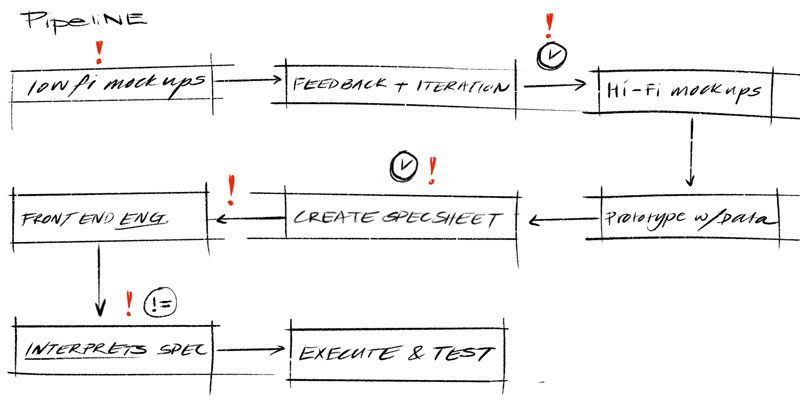 PipeliNE
!
!
low fi mockups
FEEDBACK + ITERATION
Hi-Fi mockups
!
!
FRONT END ENG
CREATE SPEC SHEET
Prototype w/Data
! !=
INTERPRETS SPEC
EXECUTE & TEST